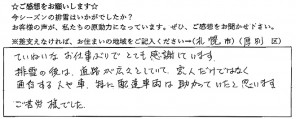 ☆ご感想をお願いします☆
今シーズンの排雪はいかがでしたか？
お客様の声が、私たちの原動力になっています。ぜひ、ご感想をお聞かせ下さい。
※差支えなければ、お住まいの地域をご記入ください→（札幌市）（厚別区）
ていねいなお仕事ぶりでとても感謝しています
排雪の後は、道路が広々としていて、家人だけではなく
通行する人や車、特に配達車両は助かっていたと思います
ご苦労様でした。